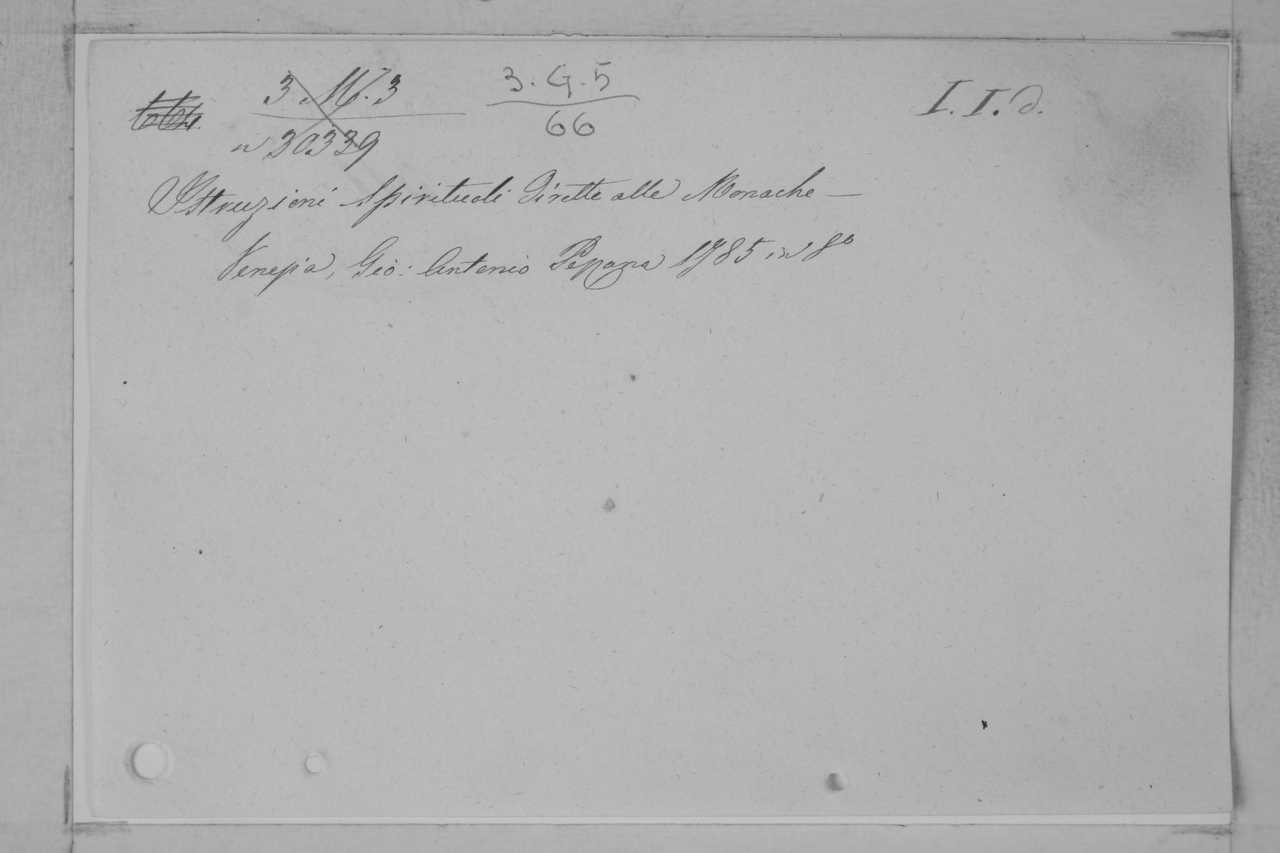 3. M. 3 3. G. 5 I. I. d.
n 30339 66
Istruzioni Spirituali Dirette alle Monache —
Venezia, Gio: Antonio Pezzana 1785 in 8º